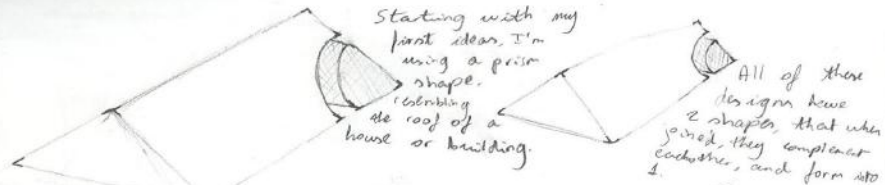 Starting with my
first ideas, I'm
using a prism
shape.
resembling
the roof of a
house or building.
All of these
designs have
2 shapes, that when
joined, they complement
eachother, and form into
1.